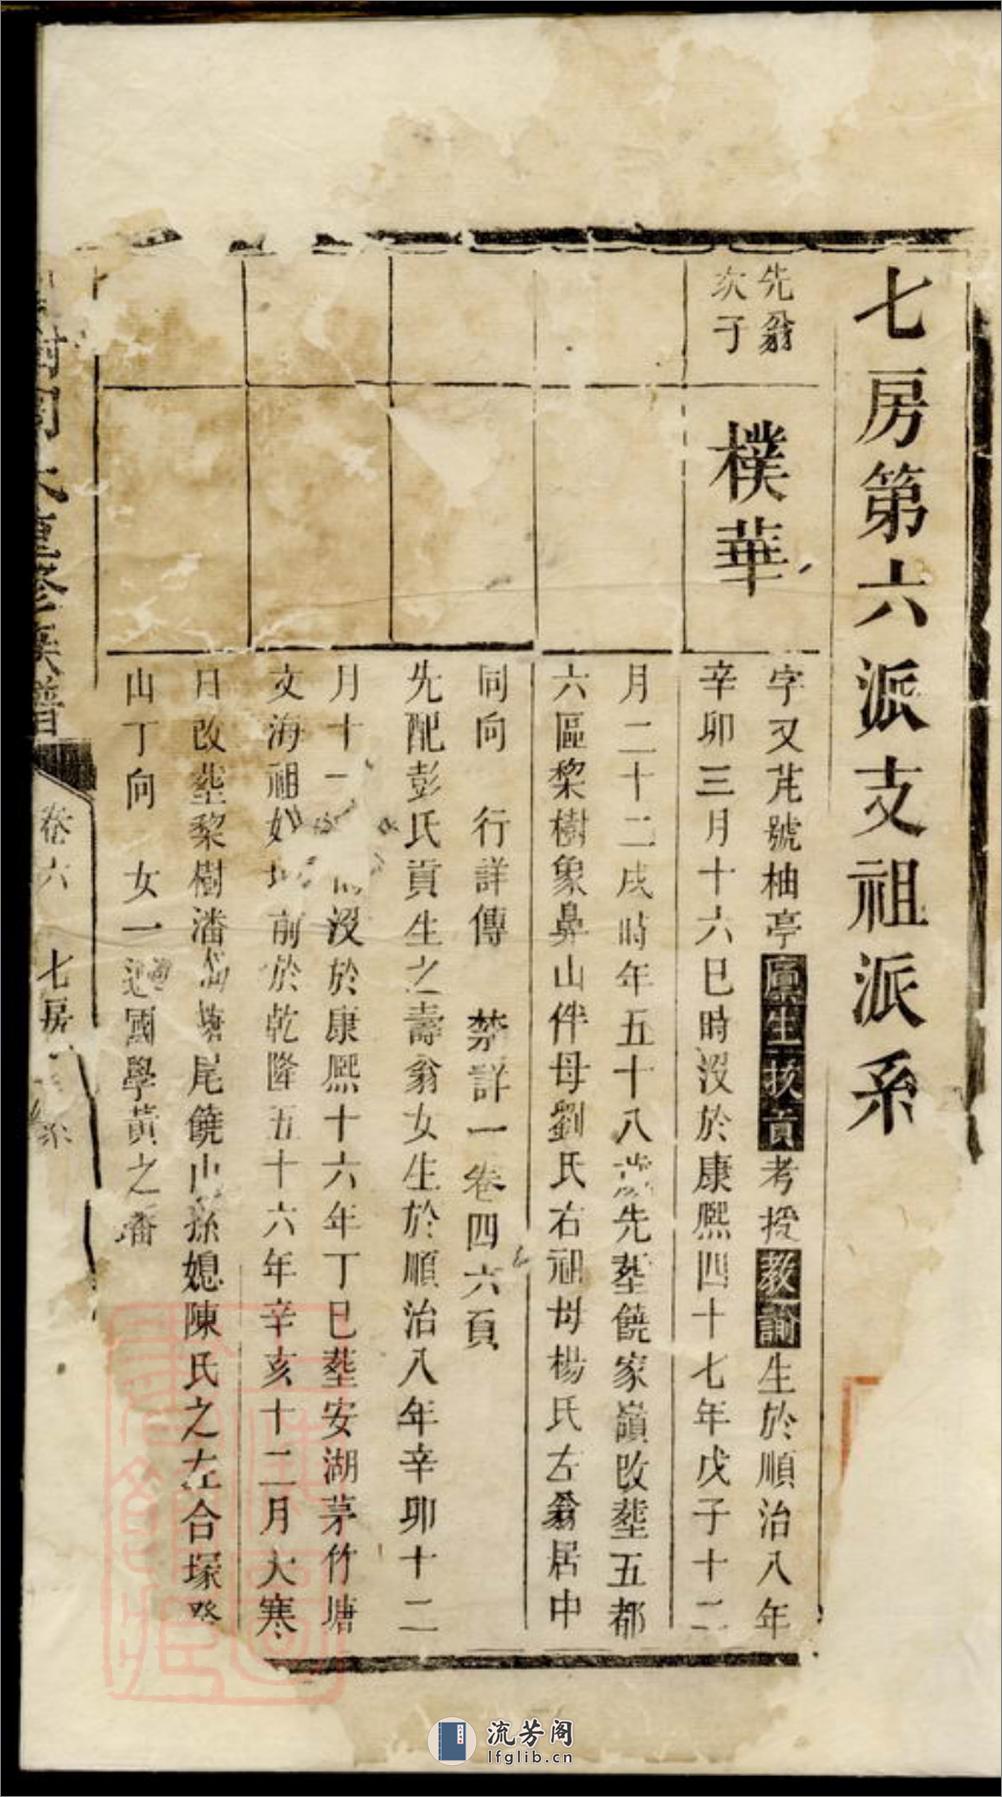 七房第六派支祖派系
先翁
次子
樸華
字又芃號柚亭廩生拔貢考授教諭生於順治八年
辛卯三月十六巳時沒於康熙四十七年戊子十二
月二十二戌時年五十八歲先塟饒家嶺改塟五都
六區棃樹象鼻山伴母劉氏右祖母楊氏左翁居中
同向 行詳傳 禁詳一卷四六頁
先配彭氏貢生之壽翁女生於順治八年辛卯十二
月十一 沒於康熙十六年丁巳塟安湖茅竹塘
文海祖妣 前於乾隆五十六年辛亥十二月大寒
日改塟黎樹潘 塘尾饒山孫媳陳氏之左合塚
山丁向 女一適國學黃之 
氏 修族譜
卷六 七房 系
流芳阁
lfglib.cn